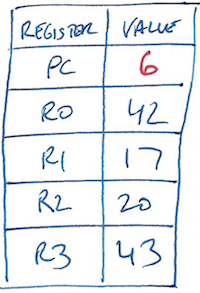 REGISTER VALUE
PC 6
R0 42
R1 17
R2 20
R3 43